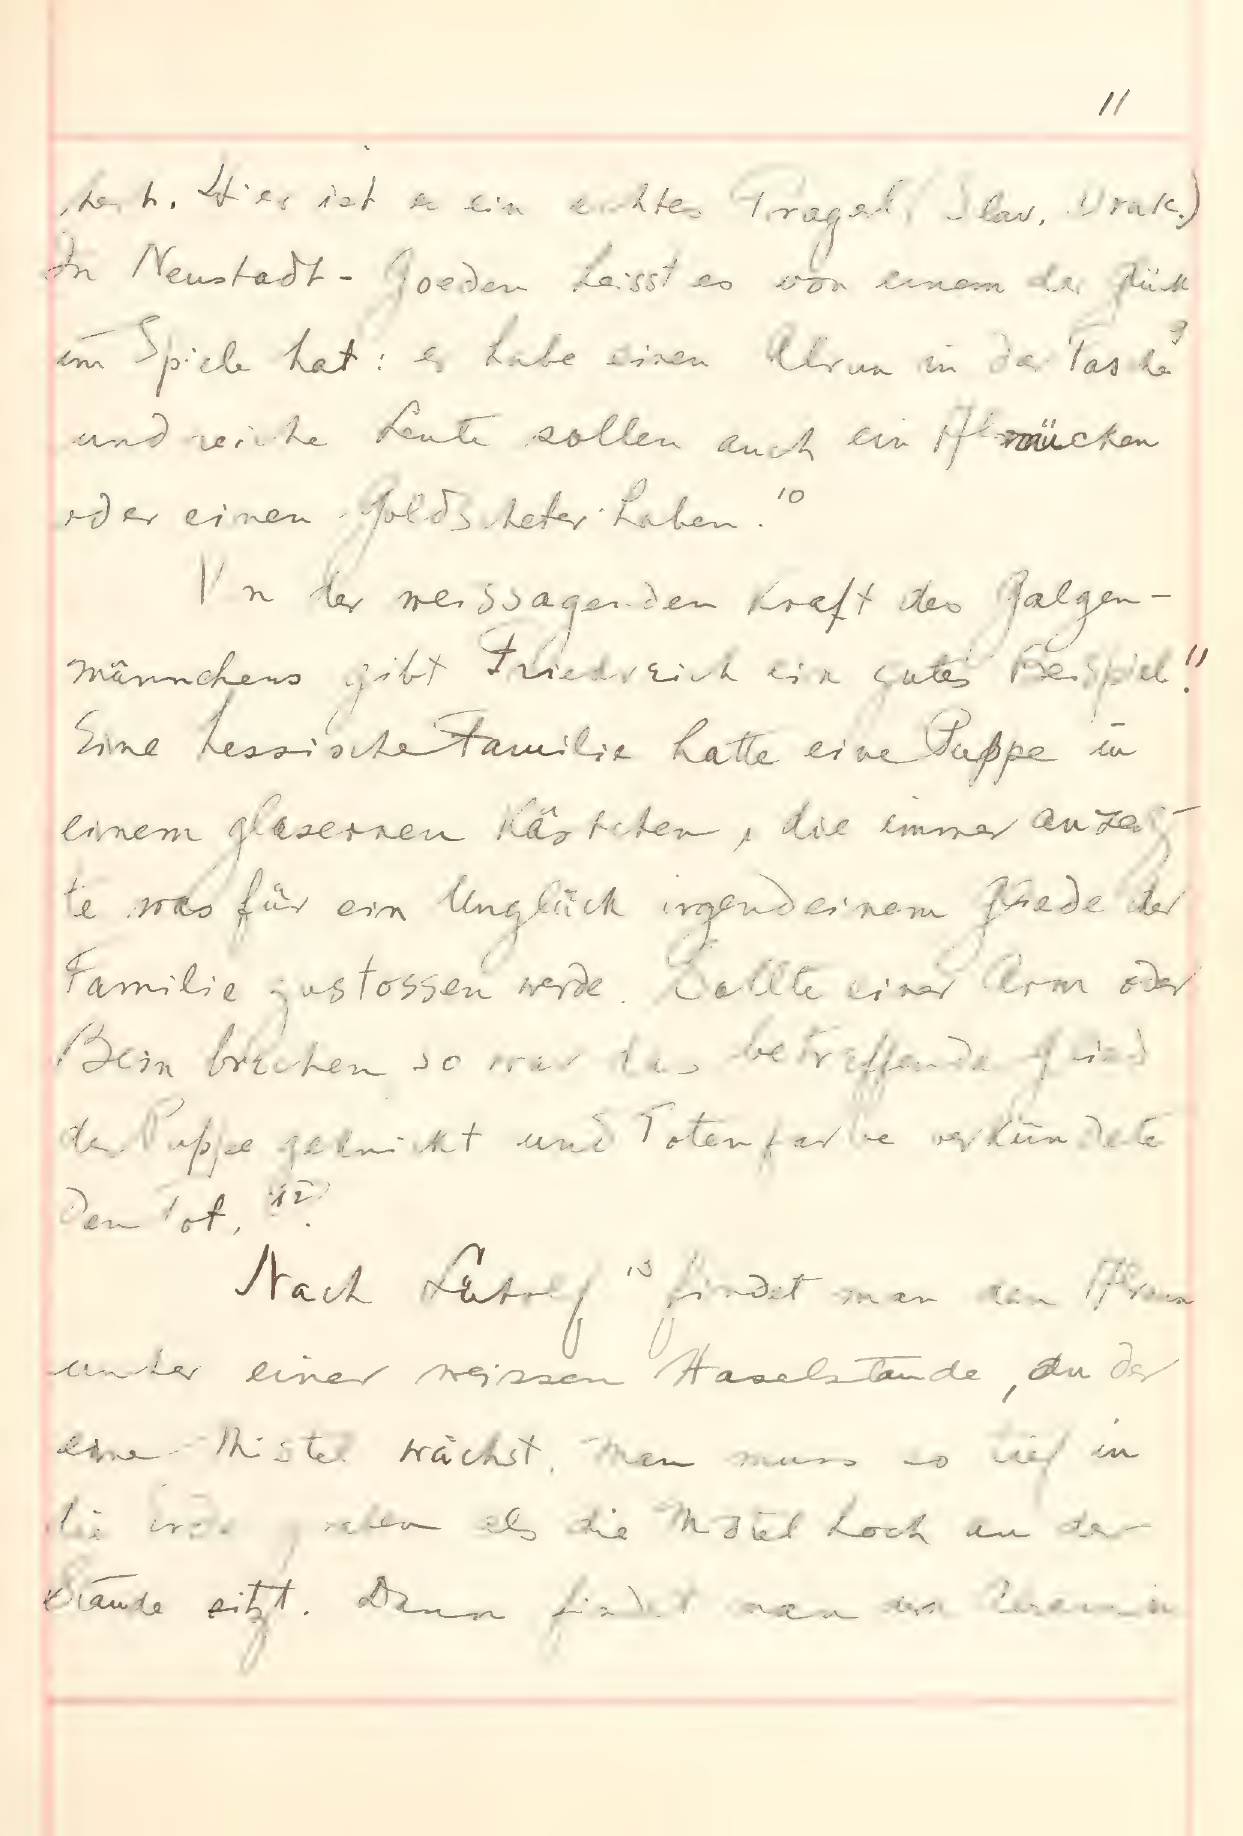 11
Hier ist er ein echtes Tragerl (Slav. Drak.)
In Neustadt-Goeden heisst es von einem der Glück
im Spiele hat: er habe einen Alrun in der Tasche 9
und reiche Leute sollen auch ein
oder einen Goldscheter haben. 10
Von der weissagenden Kraft des Galgen-
männchens gibt Friedreich ein gutes Beispiel. 11
Eine hessische Familie hatte eine Puppe in
einem glasernen Kästchen, die immer anzeig-
te was für ein Unglück irgendeinem Gliede der
Familie zustossen werde. Sollte einer Arm oder
Bein brechen so war das betreffende Glied
der Puppe geknickt und Totenfarbe verkündete
den Tot. 12
Nach Lütolf 13 findet man den Alraun
unter einer weissen Haselstaude, an der
eine Mistel wächst. Man muss so tief in
die Erde graben als die Mistel hoch an der
Staude sitzt. Dann findet man den